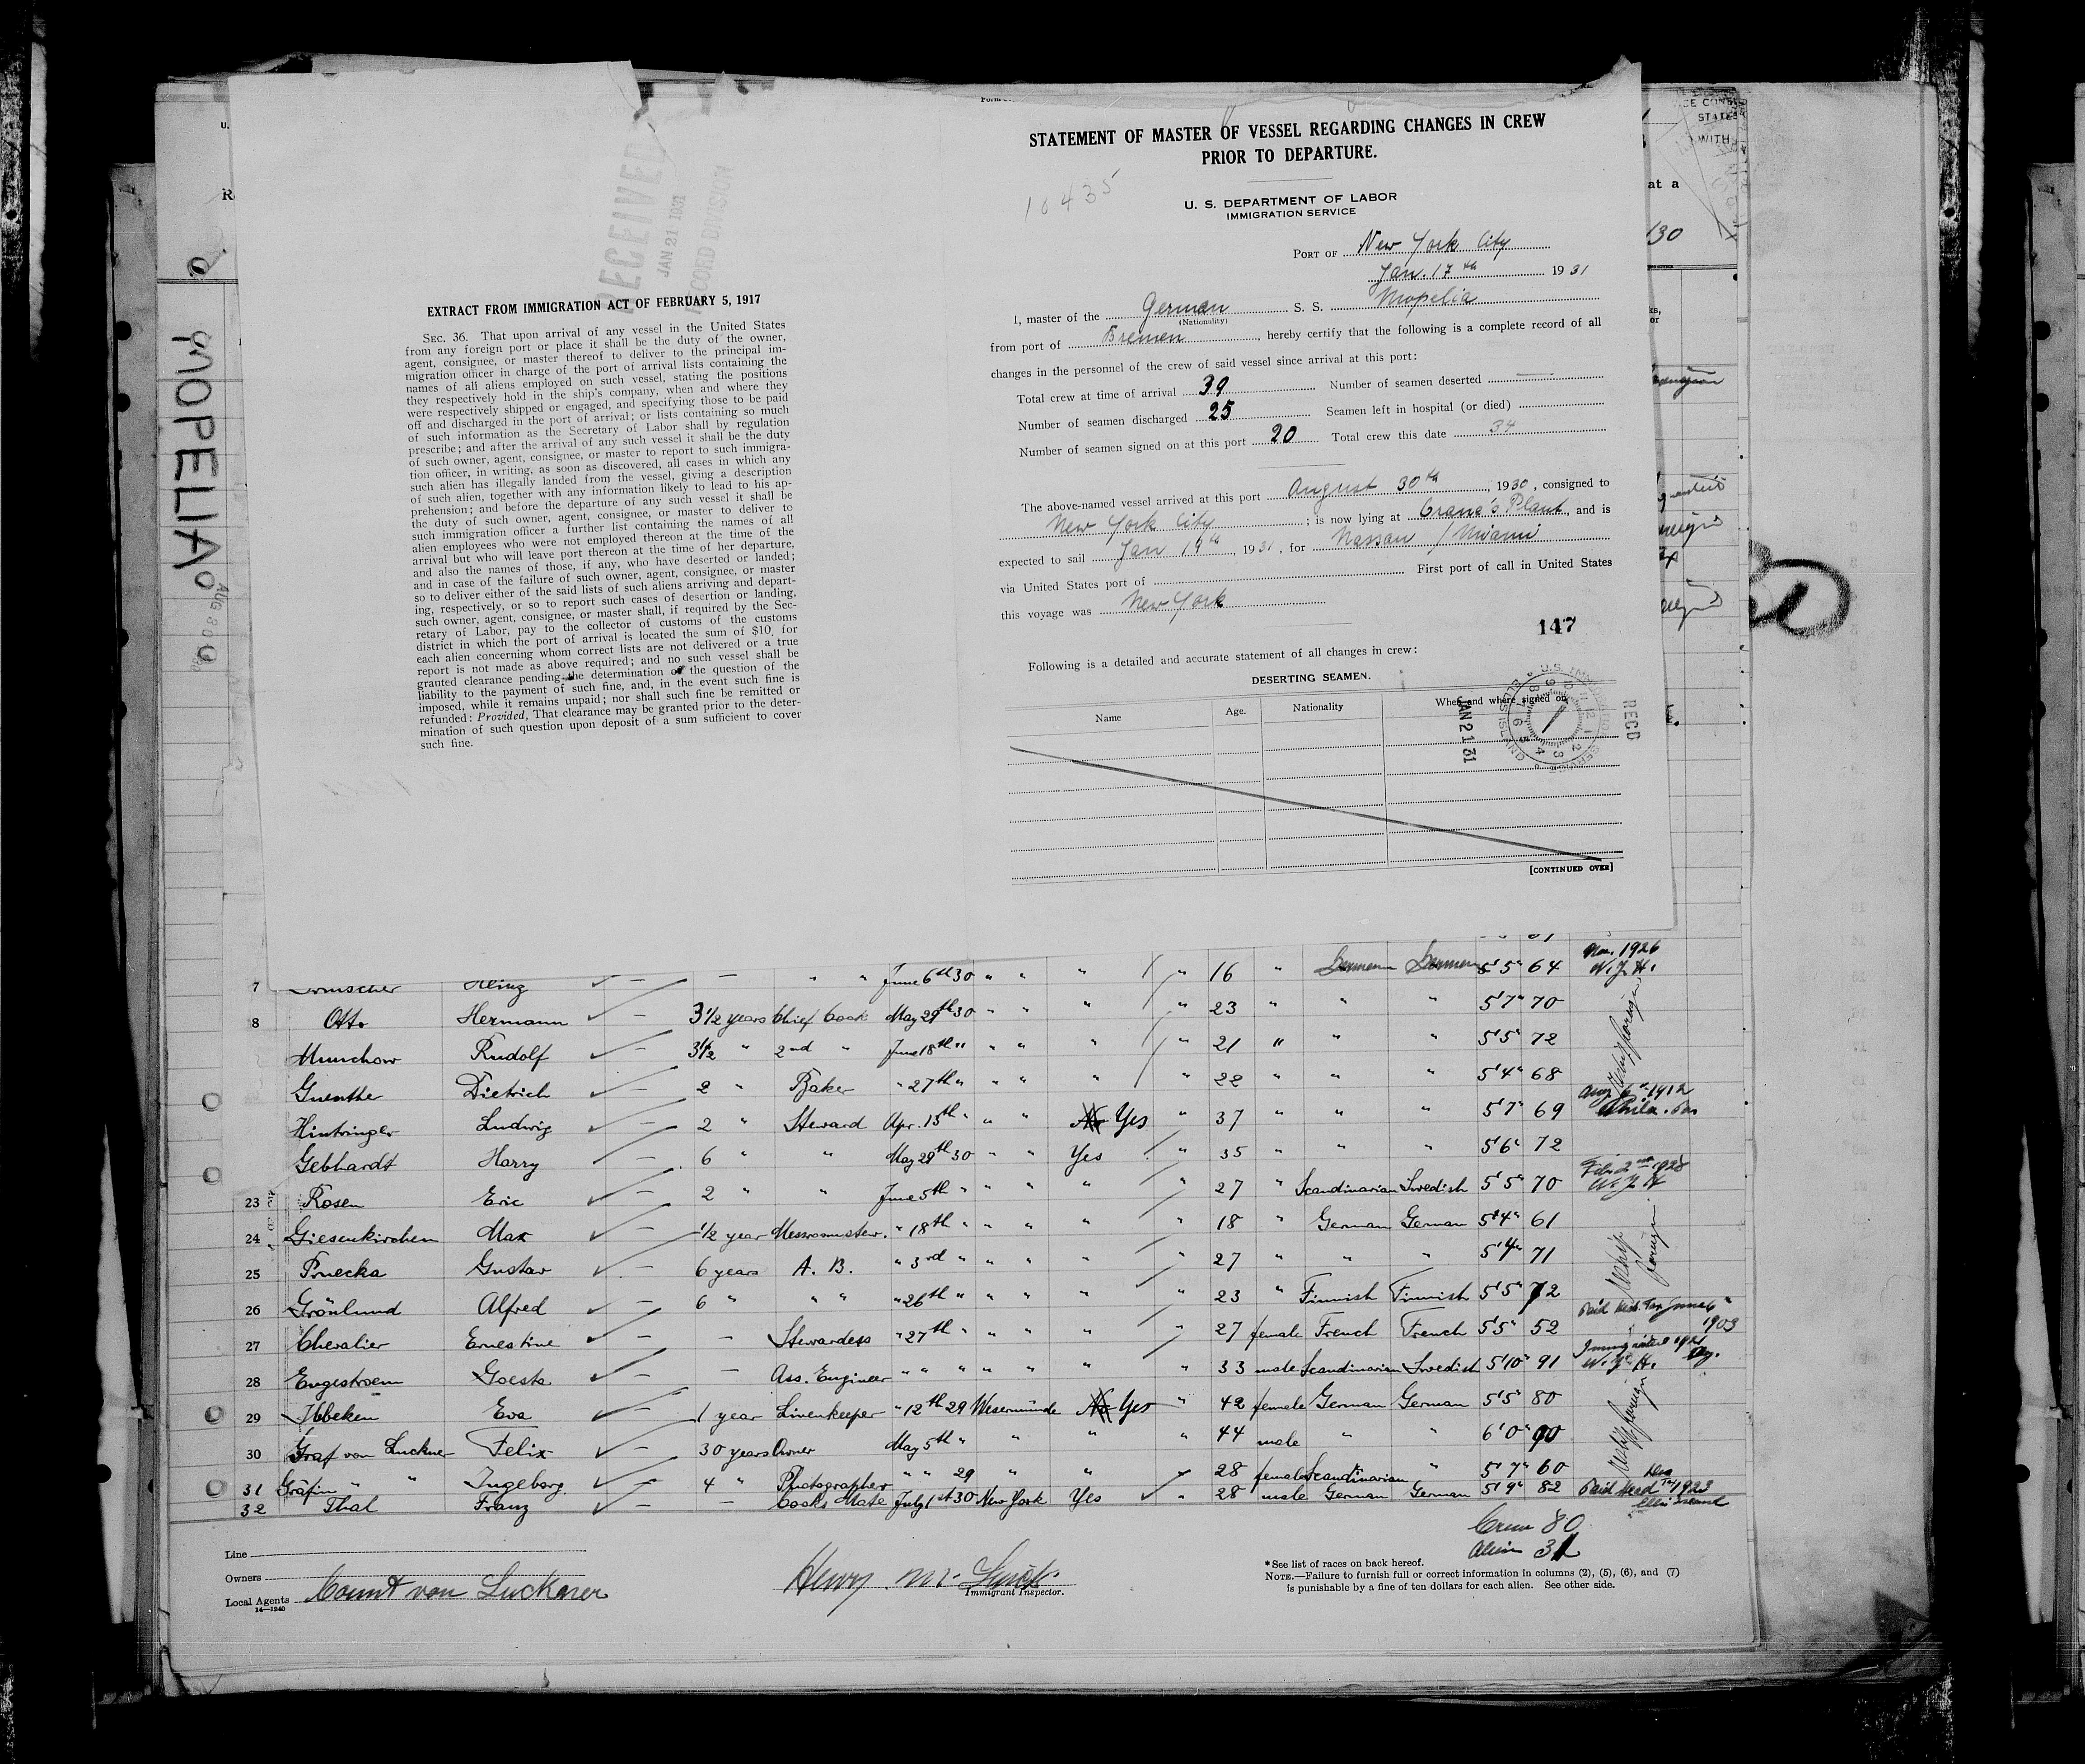 MOPELIA
AUG 30
RECEIVED
JAN 21 1931
RECORD DIVISION
EXTRACT FROM IMMIGRATION ACT OF FEBRUARY 5, 1917
SEC. 36. That upon arrival of any vessel in the United States
from any foreign port or place it shall be the duty of the owner,
agent, consignee, or master thereof to deliver to the principal im-
migration officer in charge of the port of arrival lists containing the
names of all aliens employed on such vessel, stating the positions
they respectively hold in the ship's company, when and where they
were respectively shipped or engaged, and specifying those to be paid
off and discharged in the port of arrival; or lists containing so much
of such information as the Secretary of Labor shall by regulation
prescribe; and after the arrival of any such vessel it shall be the duty
of such owner, agent, consignee, or master to report to such immigra-
tion officer, in writing, as soon as discovered, all cases in which any
such alien has illegally landed from the vessel, giving a description
of such alien, together with any information likely to lead to his ap-
prehension; and before the departure of any such vessel it shall be
the duty of such owner, agent, consignee, or master to deliver to
such immigration officer a further list containing the names of all
alien employees who were not employed thereon at the time of the
arrival but who will leave port thereon at the time of her departure,
and also the names of those, if any, who have deserted or landed;
and in case of the failure of such owner, agent, consignee, or master
so to deliver either of the said lists of such aliens arriving and depart-
ing, respectively, or so to report such cases of desertion or landing,
such owner, agent, consignee, or master shall, if required by the Sec-
retary of Labor, pay to the collector of customs of the customs
district in which the port of arrival is located the sum of $10 for
each alien concerning whom correct lists are not delivered or a true
report is not made as above required; and no such vessel shall be
granted clearance pending the determination of the question of the
liability to the payment of such fine, and, in the event such fine is
imposed, while it remains unpaid; nor shall such fine be remitted or
refunded: Provided, That clearance may be granted prior to the deter-
mination of such question upon deposit of a sum sufficient to cover
such fine.
STATEMENT OF MASTER OF VESSEL REGARDING CHANGES IN CREW
PRIOR TO DEPARTURE.
10435
U. S. DEPARTMENT OF LABOR
IMMIGRATION SERVICE
PORT OF New York City
Jan. 17th 1931
I, master of the German S. S. Mopelia
(Nationality)
from port of Bremen, hereby certify that the following is a complete record of all
changes in the personnel of the crew of said vessel since arrival at this port:
Total crew at time of arrival 39 Number of seamen deserted
Number of seamen discharged 25 Seamen left in hospital (or died)
Number of seamen signed on at this port 20 Total crew this date 34
The above-named vessel arrived at this port August 30th, 1930, consigned to
New York City; is now lying at Crane's Plant, and is
expected to sail Jan 19th, 1931, for Nassau / Miami
via United States port of First port of call in United States
this voyage was New York
147
Following is a detailed and accurate statement of all changes in crew:
DESERTING SEAMEN.
Name Age. Nationality When and where signed on
JAN 21 31
RECD
[CONTINUED OVER]
7 Heinz — " " June 6th 30 " " " " 16 " German German 5'5" 64 Nov. 1926 N.Y.H.
8 Otto Hermann — 3 1/2 years Chief Cook May 29th 30 " " " " 23 " " " 5'7" 70
Munchow Rudolf — 3 1/2 " 2nd " June 18th " " " " " 21 " " " 5'5" 72
Guenther Dietrich — 2 " Baker " 27th " " " " " 22 " " " 5'4" 68
Hintringer Ludwig — 2 " Steward Apr. 15th " " " Yes " 37 " " " 5'7" 69 Aug 6th 1912 Phila. Pa
Gebhardt Harry — 6 " " May 29th 30 " " Yes " 35 " " " 5'6" 72
23 Rosen Eric — 2 " " June 5th " " " " " 27 " Scandinarian Swedish 5'5" 70
24 Giesenkirchen Max — 1/2 year Messroomstew. " 18th " " " " " 18 " German German 5'4" 61
25 Pruecka Gustav — 6 years A. B. " 3rd " " " " " 27 " " " 5'4" 71
26 Grönlund Alfred — 6 " " " " 26th " " " " " 23 " Finnish Finnish 5'5" 72
27 Chevalier Ernestine — — Stewardess " 27th " " " " " 27 female French French 5'5" 52 Paid Head Tax June 6" 1903
28 Engestroem Goesta — — Ass. Engineer " " " " " " " 33 male Scandinarian Swedish 5'10" 91
29 Ibbeken Eva — 1 year Linenkeeper " 12th 29 Wesermünde Yes " 42 female German German 5'5" 80
30 Graf von Luckner Felix — 30 years Owner May 5th " " " " 44 male " " 6'0" 90
31 Gräfin " " Ingeborg — 4 " Photographer " " 29 " " " 28 female Scandinarian " 5'7" 60
32 Thal Franz — — Cooks Mate July 1st 30 New York Yes " 28 male German German 5'9" 82 Paid Head Tax 1923 Ellis Island
Crew 80
Alien 31
Line
Owners
Local Agents Count von Luckner
14—1240
Henry
Immigrant Inspector.
* See list of races on back hereof.
NOTE.—Failure to furnish full or correct information in columns (2), (5), (6), and (7)
is punishable by a fine of ten dollars for each alien. See other side.